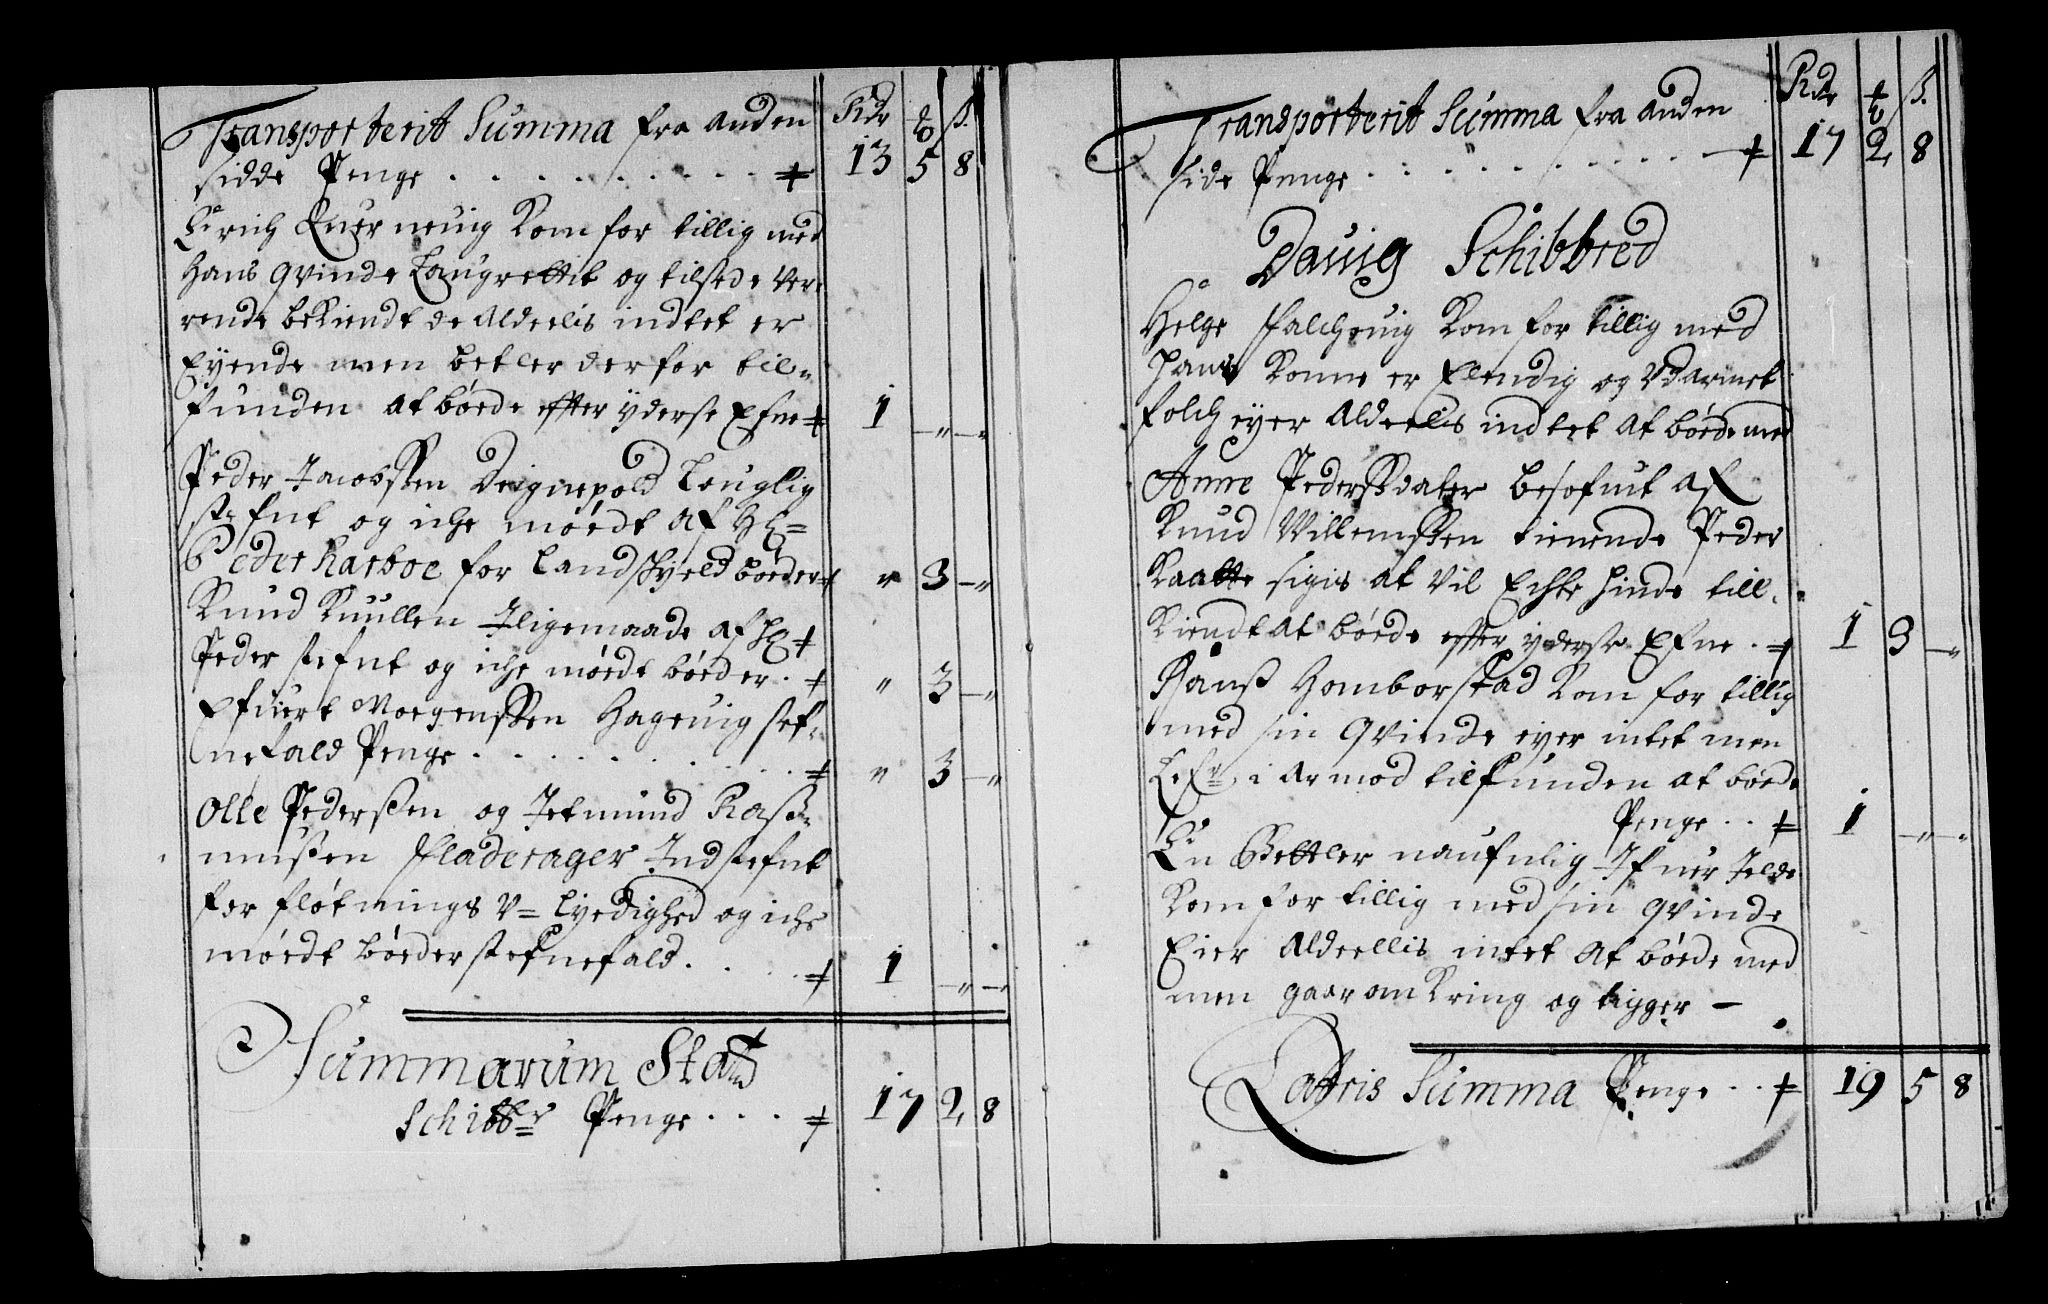 Transporterit Summa fra anden Rdr ß.
sidde Penge . . . . . . . . 13 5 8
Erich Quernevig Kom for tillig med
Hans Qvinde Laugrettit og tilstede ver-
rende bekiendt de Aldeelis indtet er
Eyende men betler derfor til-
funden at böede effter yderste Efne 1 - -
Peder Jacobssen Deignepold Louglig
stefnt og iche möedt af Hr=
Peder harboe for Landschyeld böeder " 3 -
Knud Knullen Jligemaade af Hr
Peder stefnt og iche möedt böeder . " 3 -
Efuert Moegenssen Hagevig stef-
nefald Penge . . . . . . . . " 3 -
Olle Pederssen og Jetmund Rass-
mussen Fladerager Indstefnt
for flötnings V= lyedighed og iche
möedt böeder stefnefald . . . . 1 - -
Summarum Stad
Schibbr Penge . . . 17 2 8
Transporterit Summa fra anden Rdr ß.
side Penge . . . . . . . . 17 2 8
Davig Schibbred
Helge Falchevig Kom for tillig med
Hans Konne er Elendig og Vdarmet
folch eyer Aldeelis indtet at böede med
Anne Pederssdater besofuit af
Knud Villemssen tienende Peder
Kaatte sigis at vil Echte hinde till-
Kiendt at böede effter yderste Efne . 1 3 -
Hanss Homborstad Kom for tillig
med sin Qvinde eyer intet men
Lefr i Armod tilfunden at böede
Penge . . 1 - -
En Bettler naufnlig Jfuer Jelde
Kom for tillig med sin Qvinde
Eier Aldeellis intet At böede med
men gaar om Kring og tigger -
Lattris Summa Penge . . 19 5 8